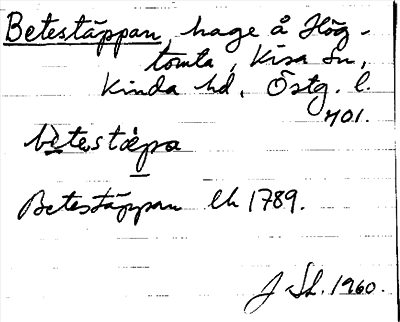 Betestäppan, hage å Hög-
tomta, Kisa sn,
Kinda hd, Östg. l.
401.
betestæpa
Betestäppan lh 1789.
J Sh. 1960.